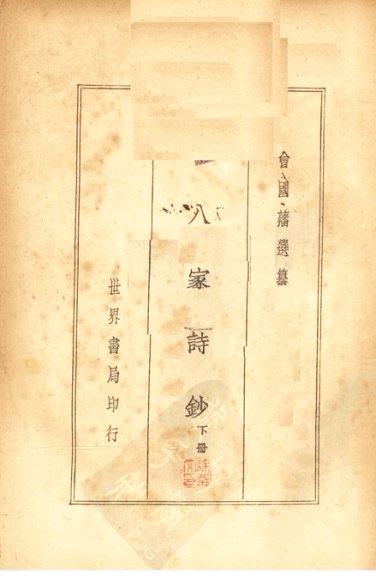 曾國藩選纂
八家詩鈔下冊
世界書局印行